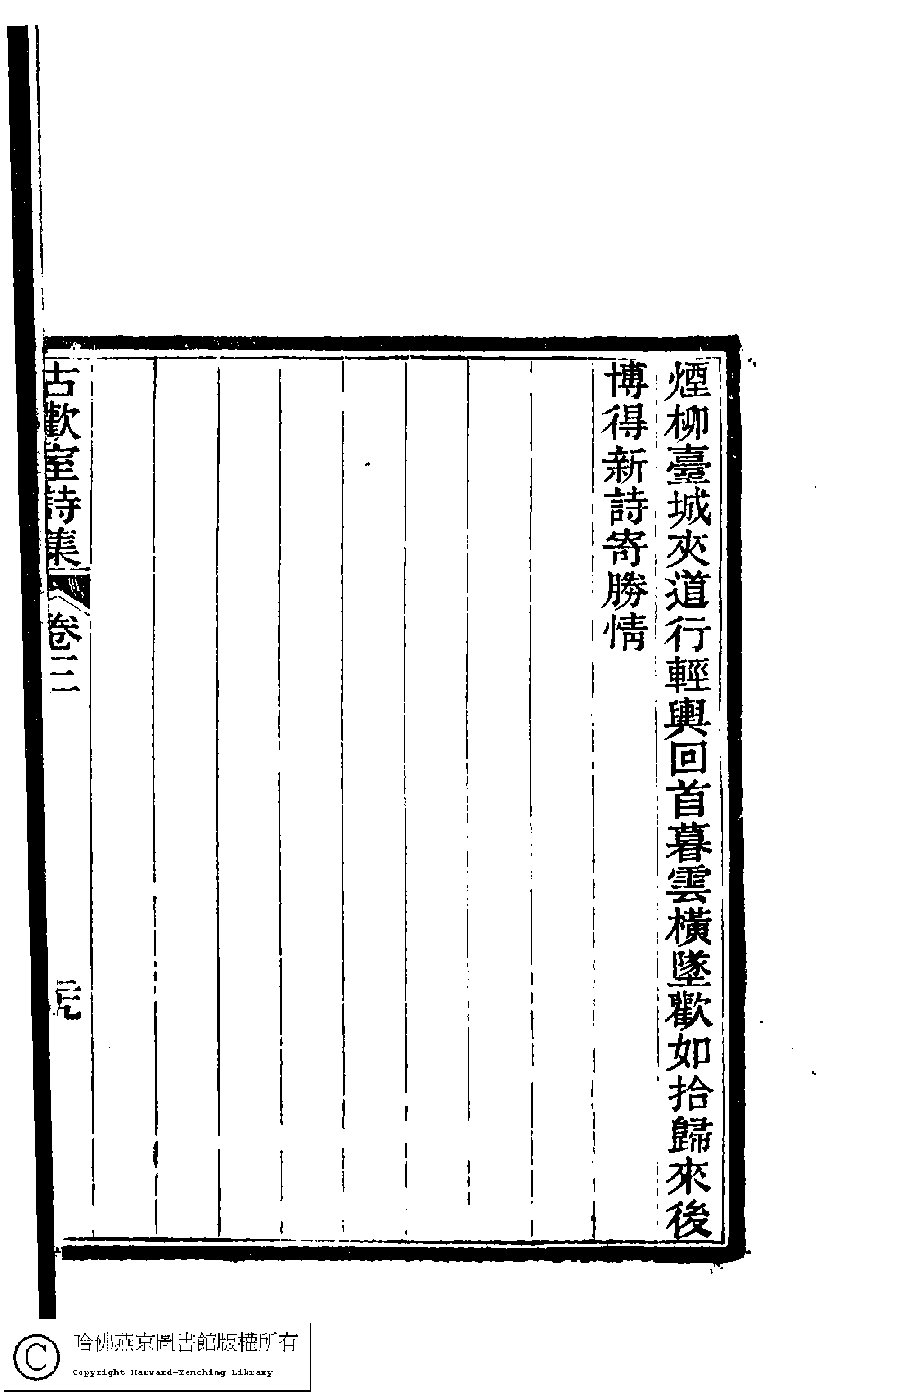 煙柳臺城夾道行輕輿回首暮雲橫墜歡如拾歸來後
博得新詩寄勝情
古歡室詩集
卷三
哈佛燕京圖書館版權所有
Copyright Harvard-Yenching Library